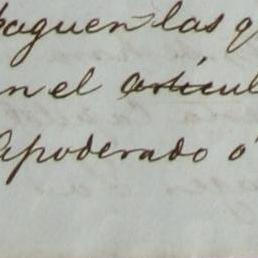 paguen las q
n el articul
Apoderado ó